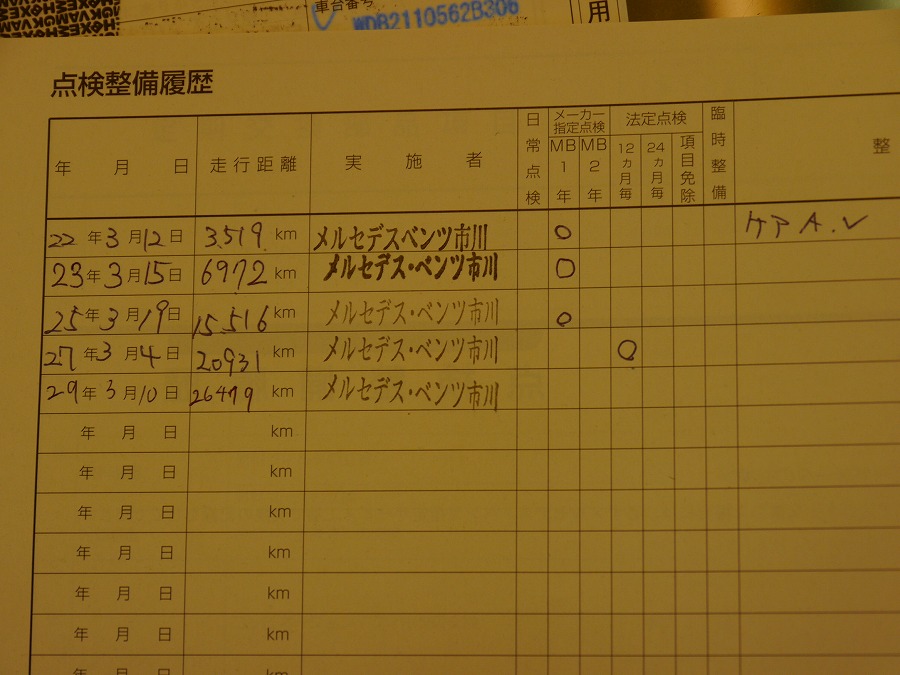 車台番号
WDB2110562B306
用
点検整備履歴
年 月 日 走行距離 実施者 日常点検 メーカー指定点検 MB1年 MB2年 法定点検 12ヵ月毎 24ヵ月毎 項目免除 臨時整備 整
22年3月12日 3,519 km メルセデスベンツ市川 ○
23年3月15日 6972 km メルセデス・ベンツ市川 ○
25年3月19日 15,516 km メルセデス・ベンツ市川 ○
27年3月4日 20931 km メルセデス・ベンツ市川 ○
29年3月10日 26479 km メルセデス・ベンツ市川
年 月 日 km
年 月 日 km
年 月 日 km
年 月 日 km
年 月 日 km
年 月 日 km